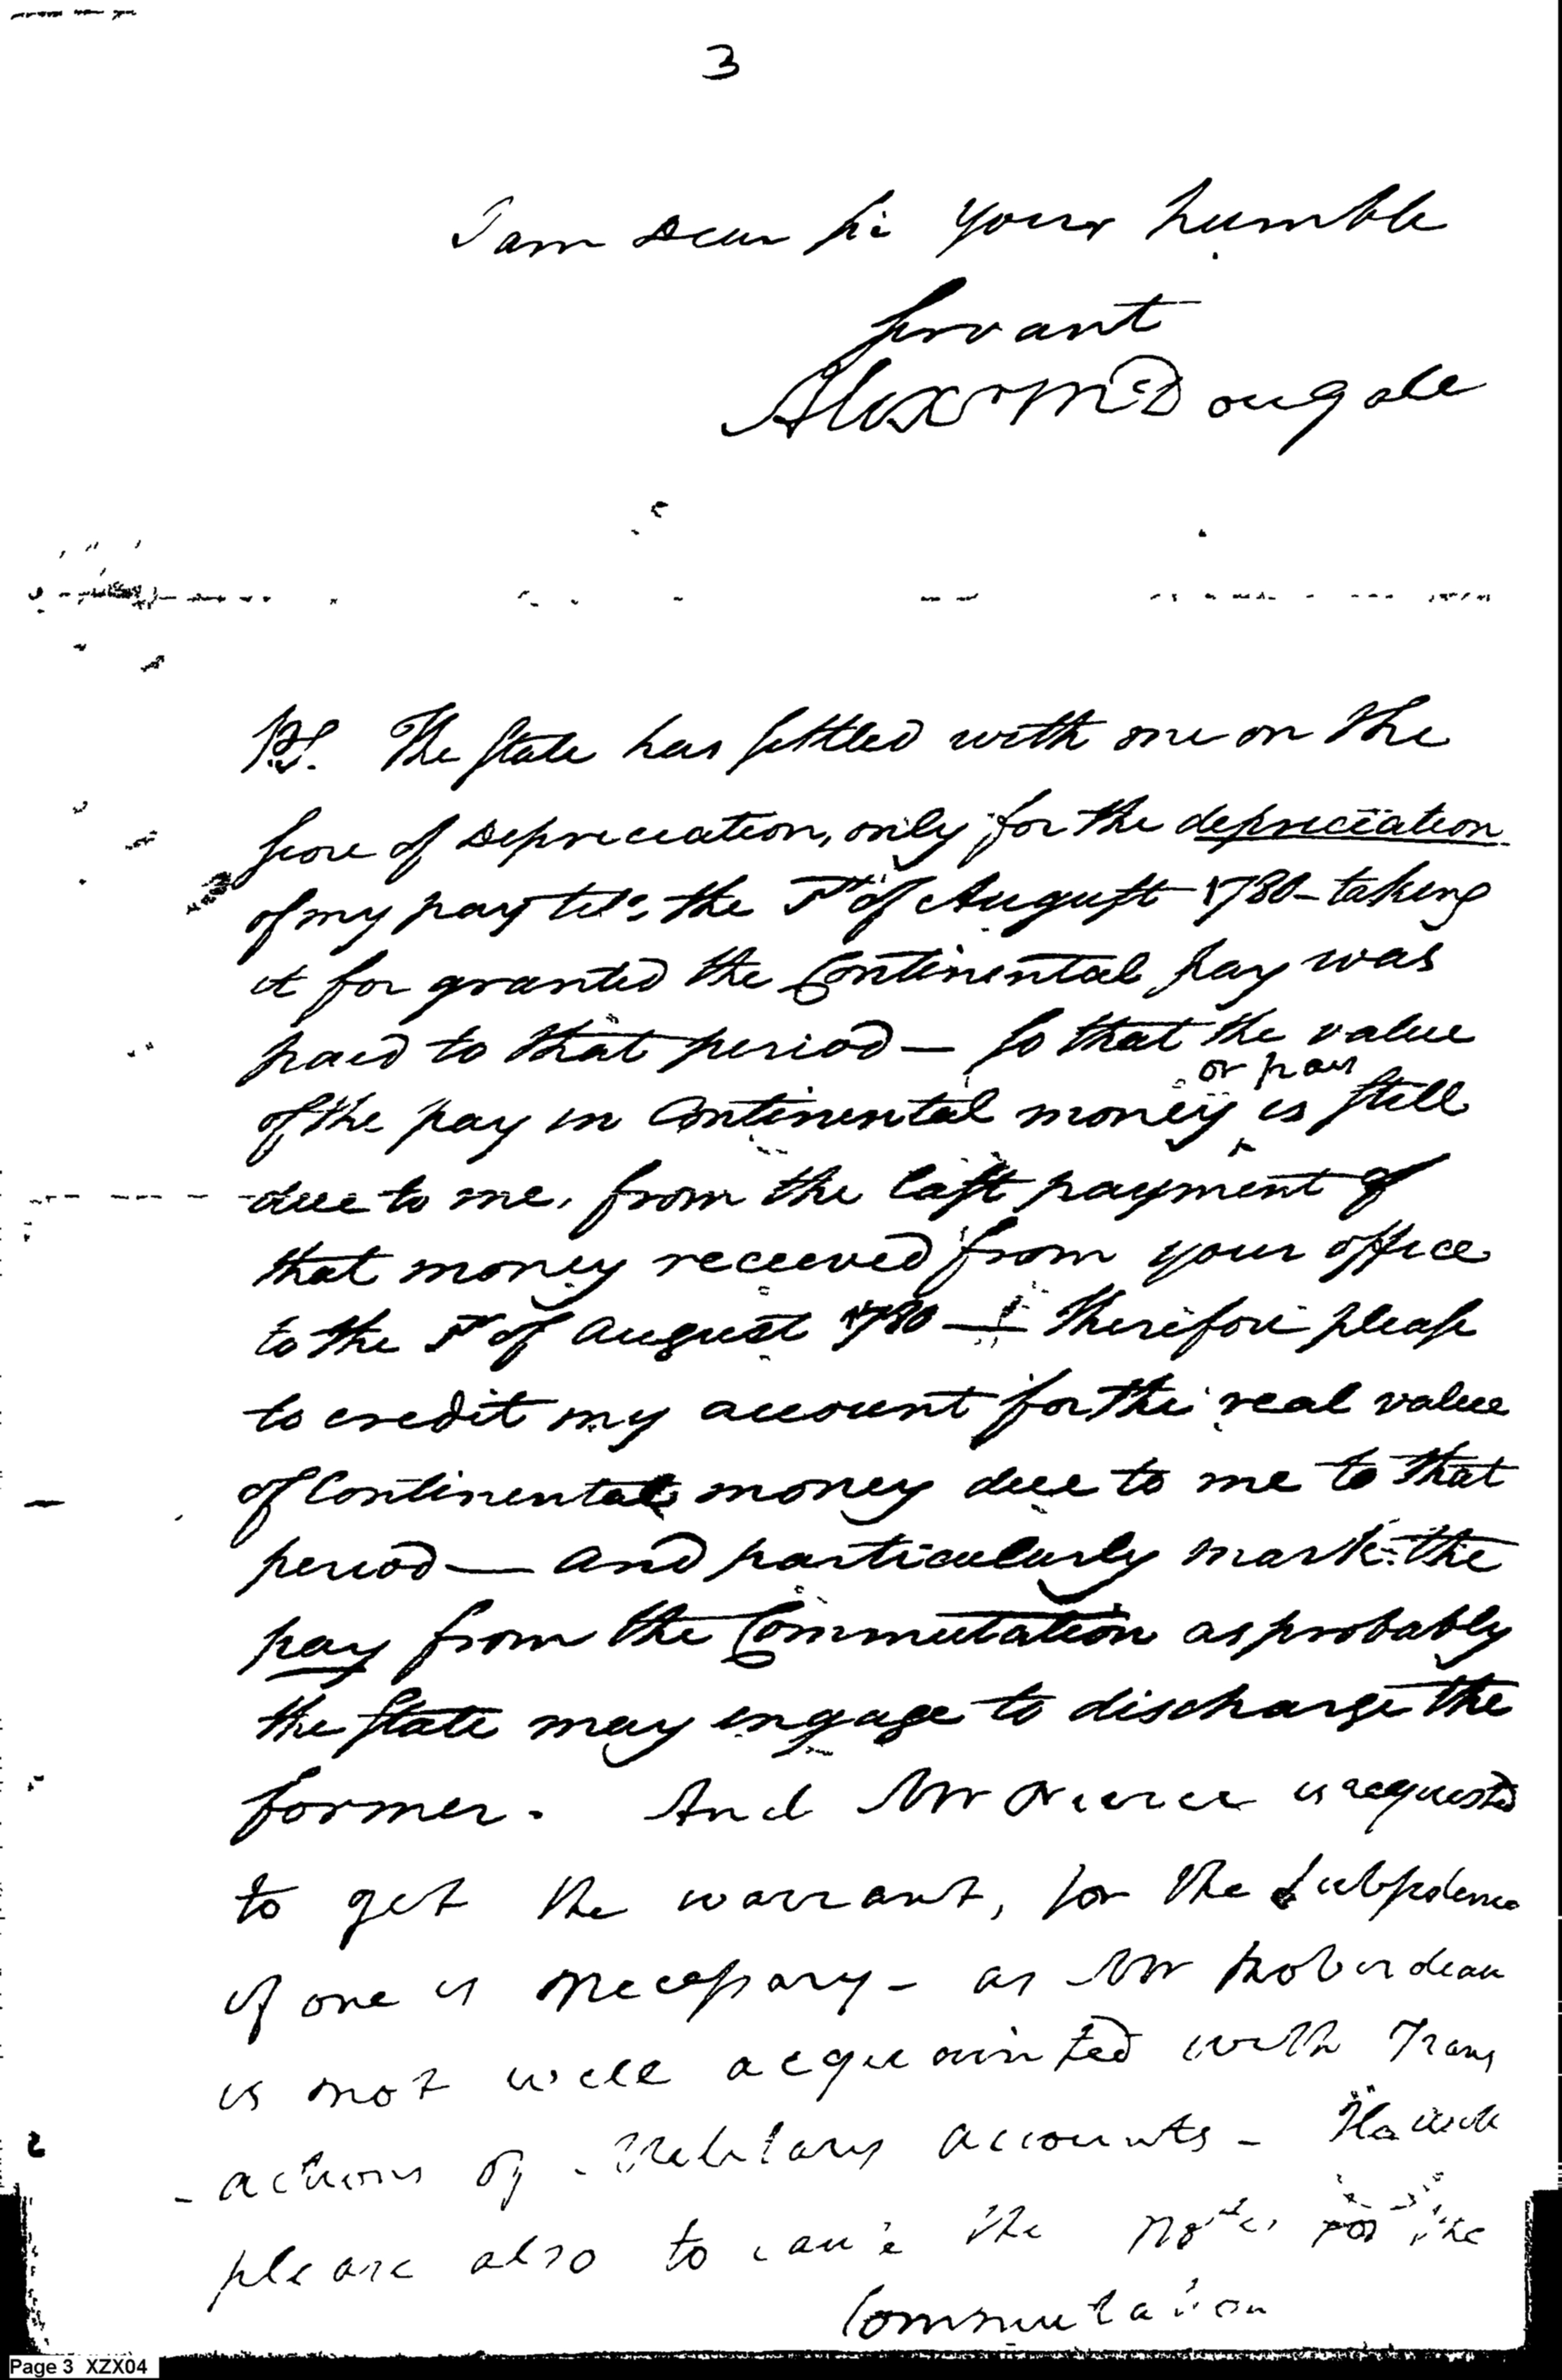 3
I am Dear Sir your humble
Servant
Alexr McDougall
P.S. The State has settled with me on the
score of Depreciation, only for the depreciation
of my pay till the 1st of August 1780 - taking
it for granted the Continental pay was
paid to that period — so that the value
or par
of the pay in Continental money is still
due to me, from the last payment of
that money received from your office
to the 1st of August 1780 — Therefore please
to credit my account for the real value
of Continental money due to me to that
period — and particularly mark the
pay from the Commutation as probably
the State may engage to discharge the
former. And Mr Pierce is requested
to get the warrant, for the Subsistence
if one is necessary - as Mr Roberdeau
is not well acquainted with Trans
-actions of Military accounts - He will
please also to cause the Notes for the
Commutation
Page 3 XZX04